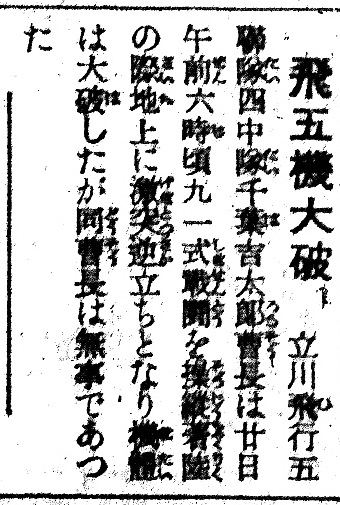 飛五機大破 立川飛行五
聯隊四中隊千葉吉太郎曹長は廿日
午前六時頃九一式戰鬪を操縱着陸
の際地上に激突逆立ちとなり機體
は大破したが同曹長は無事であつ
た